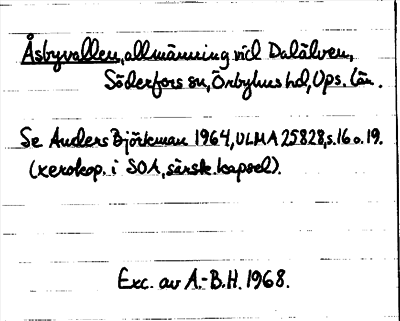 Åsbyvallen, allmänning vid Dalälven,
Söderfors sn, Örbyhus hd, Ups. län.
Se Anders Björkman 1964, ULMA 25828, s. 16 o. 19.
(xerokop. i SOA, särsk. kapsel).
Exc. av A.-B.H. 1968.